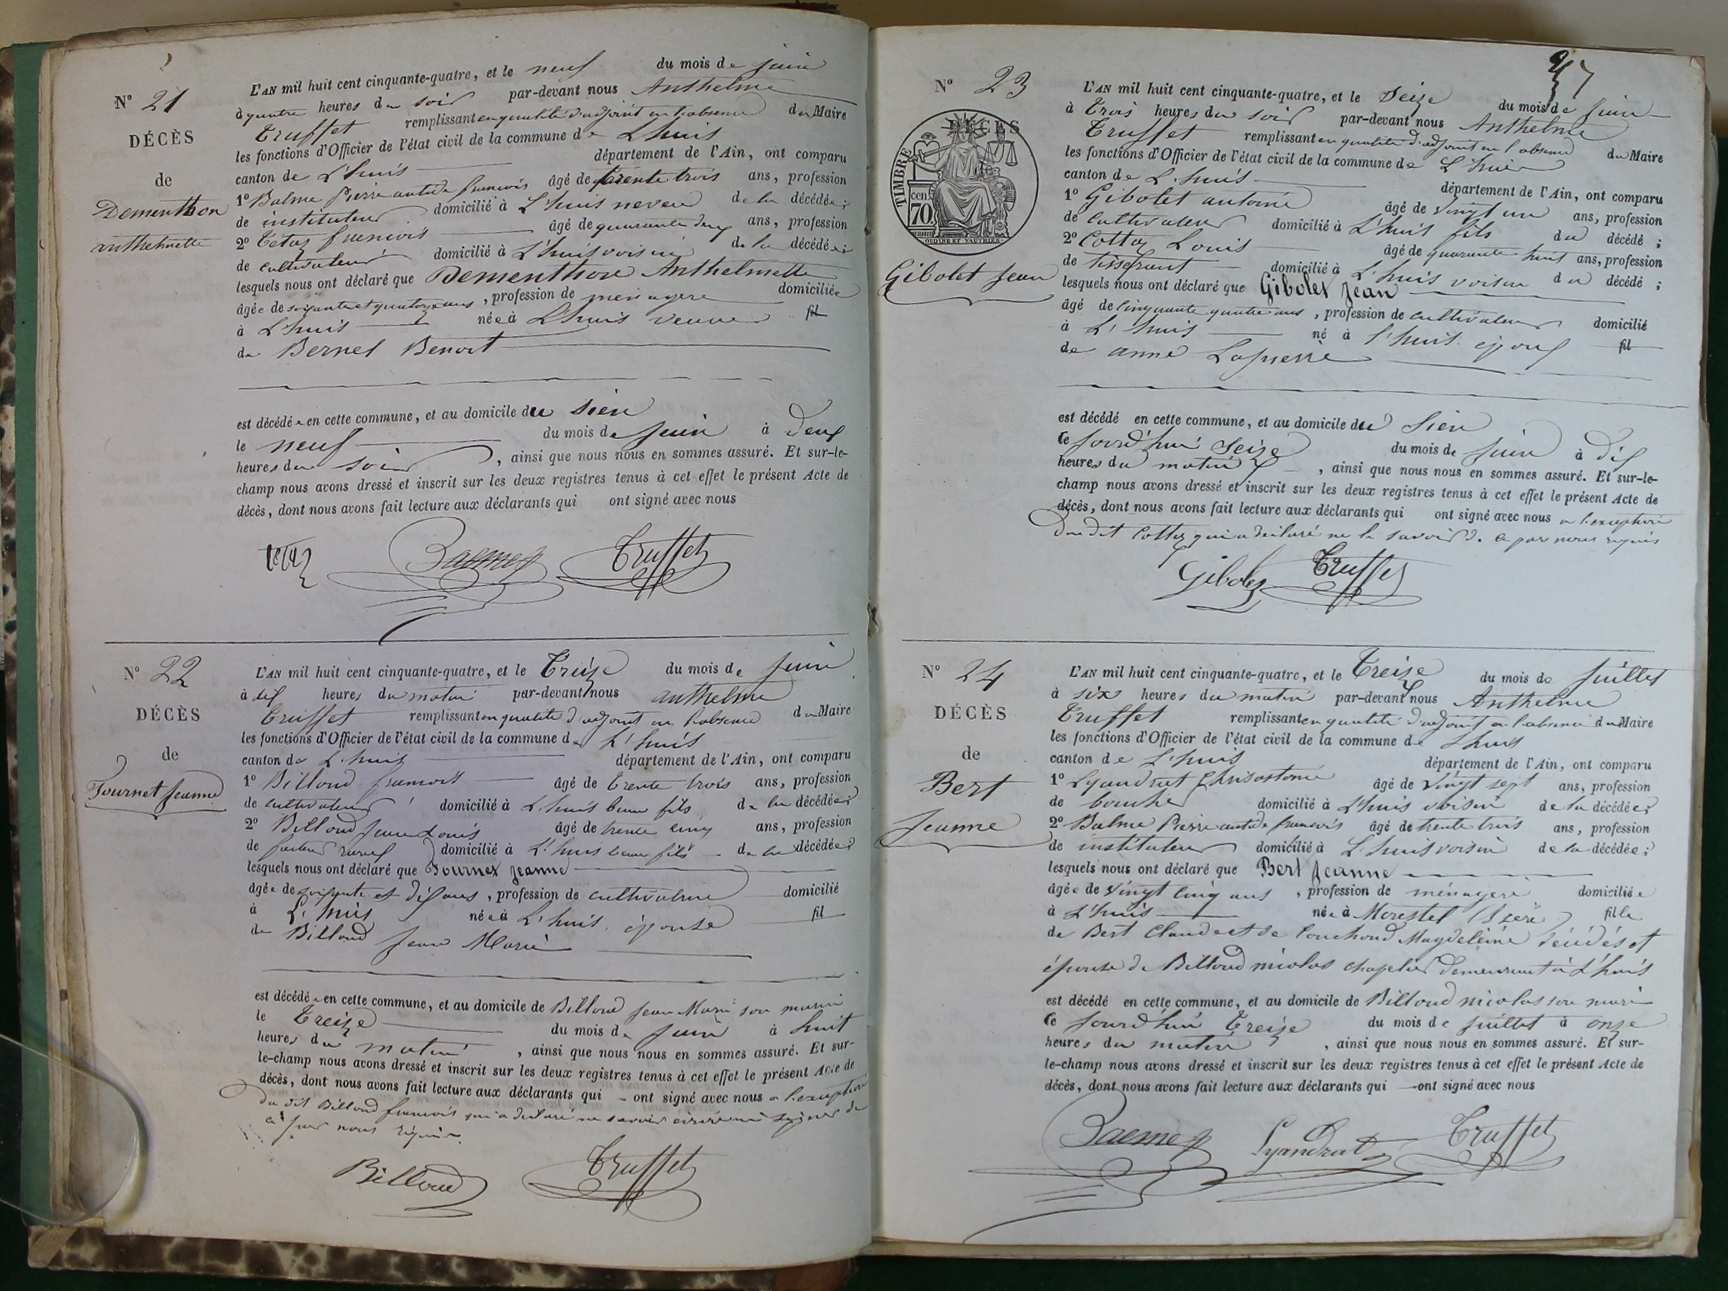 N° 21
DÉCÈS
de
Dementhon
anthelmette
L'AN mil huit cent cinquante-quatre, et le neuf du mois de juin
à quatre heures du soir par-devant nous Anthelme
Truffet remplissant en qualité d'adjoint en l'absence du Maire
les fonctions d'Officier de l'état civil de la commune de L'huis
canton de L'huis département de l'Ain, ont comparu
1° Balme Pierre antide francois âgé de trente trois ans, profession
de instituteur domicilié à L'huis neveu de la décédée;
2° francois âgé de quarante deux ans, profession
de cultivateur domicilié à L'huis voisin de la décédée;
lesquels nous ont déclaré que Dementhon Anthelmette
âgée de soixante et quatorze ans, profession de ménagere domiciliée
à L'huis née à L'huis veuve fil
de Bernet Benoit
est décédée en cette commune, et au domicile du sien
le neuf du mois de juin à deux
heures du soir, ainsi que nous nous en sommes assuré. Et sur-le-
champ nous avons dressé et inscrit sur les deux registres tenus à cet effet le présent Acte de
décès, dont nous avons fait lecture aux déclarants qui ont signé avec nous
Truffet
N° 22
DÉCÈS
de
Tournet Jeanne
L'AN mil huit cent cinquante-quatre, et le Treize du mois de juin
à dix heures du matin par-devant nous anthelme
Truffet remplissant en qualité d'adjoint en l'absence du Maire
les fonctions d'Officier de l'état civil de la commune de L'huis
canton de L'huis département de l'Ain, ont comparu
1° Billoud francois âgé de trente trois ans, profession
de cultivateur domicilié à L'huis beau fils de la décédée;
2° Billoud Jean Louis âgé de trente cinq ans, profession
de facteur rural domicilié à L'huis beau fils de la décédée;
lesquels nous ont déclaré que Tournet Jeanne
âgée de soixante et dix ans, profession de cultivatrice domicilié
à L'huis née à L'huis épouse fil
de Billoud Jean Marie
est décédée en cette commune, et au domicile de Billoud Jean Marie son mari
le Treize du mois de juin à huit
heures du matin, ainsi que nous nous en sommes assuré. Et sur-
le-champ nous avons dressé et inscrit sur les deux registres tenus à cet effet le présent Acte de
décès, dont nous avons fait lecture aux déclarants qui ont signé avec nous a l'exception
du dit Billoud francois qui a déclaré ne savoir écrire ni signer de
ce par nous requis
Billoud Truffet
N° 23
DÉCÈS
de
TIMBRE
70
Gibolet Jean
L'AN mil huit cent cinquante-quatre, et le Seize du mois de juin
à Trois heures du soir par-devant nous Anthelme
Truffet remplissant en qualité d'adjoint en l'absence du Maire
les fonctions d'Officier de l'état civil de la commune de L'huis
canton de L'huis département de l'Ain, ont comparu
1° Gibolet antoine âgé de vingt un ans, profession
de cultivateur domicilié à L'huis fils du décédé;
2° Cottaz Louis âgé de quarante huit ans, profession
de tisserant domicilié à L'huis voisin du décédé;
lesquels nous ont déclaré que Gibolet Jean
âgé de cinquante quatre ans, profession de cultivateur domicilié
à L'huis né à L'huis époux fil
de anne Lapierre
est décédé en cette commune, et au domicile du sien
ce jourd'hui Seize du mois de juin à dix
heures du matin, ainsi que nous nous en sommes assuré. Et sur-le-
champ nous avons dressé et inscrit sur les deux registres tenus à cet effet le présent Acte de
décès, dont nous avons fait lecture aux déclarants qui ont signé avec nous a l'exception
du dit Cottaz qui a déclaré ne le savoir de ce par nous requis
Gibolet Truffet
N° 24
DÉCÈS
de
Bert
Jeanne
L'AN mil huit cent cinquante-quatre, et le Treize du mois de juillet
à six heures du matin par-devant nous Anthelme
Truffet remplissant en qualité d'adjoint en l'absence du Maire
les fonctions d'Officier de l'état civil de la commune de L'huis
canton de L'huis département de l'Ain, ont comparu
1° Lyandrat Chrisostome âgé de vingt sept ans, profession
de boucher domicilié à L'huis voisin de la décédée;
2° Balme Pierre antide francois âgé de trente trois ans, profession
de instituteur domicilié à L'huis voisin de la décédée;
lesquels nous ont déclaré que Bert Jeanne
âgée de vingt cinq ans, profession de ménagere domiciliée
à L'huis née à Morestel (Isère) fille
de Bert Claude et de Couchoud Magdeleine décédés et
épouse de Billoud nicolas chapelier demeurant à L'huis
est décédé en cette commune, et au domicile de Billoud nicolas son mari
ce jourd'hui Treize du mois de juillet à onze
heures du matin, ainsi que nous nous en sommes assuré. Et sur-
le-champ nous avons dressé et inscrit sur les deux registres tenus à cet effet le présent Acte de
décès, dont nous avons fait lecture aux déclarants qui ont signé avec nous
Lyandrat Truffet